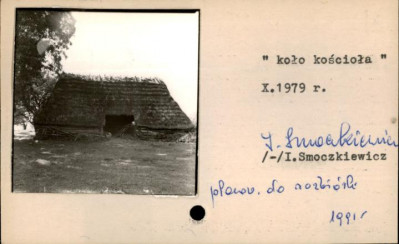 " koło kościoła "
X.1979 r.
I. Smoczkiewicz
/-/I.Smoczkiewicz
do rozbiórki
1991 r